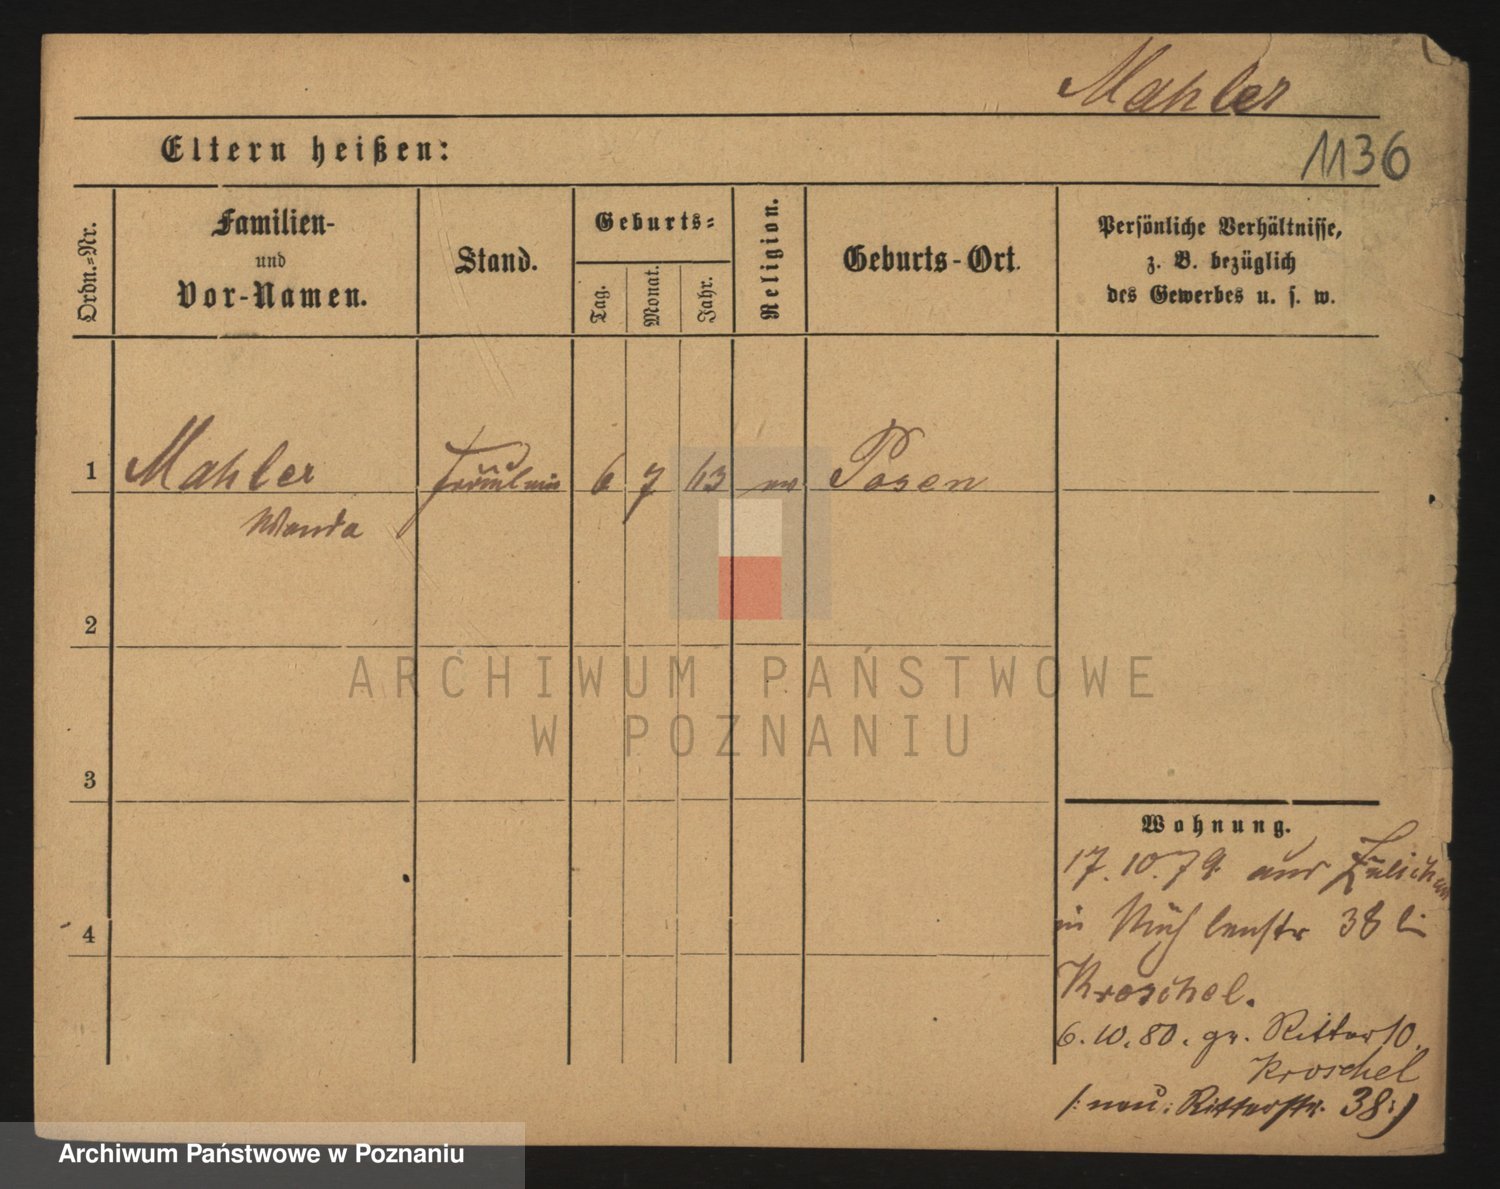 Mahler
Eltern heißen:
1136
Ordn.=Nr.
Familien-
und
Vor-Namen.
Stand.
Geburts=
Tag.
Monat.
Jahr.
Religion.
Geburts-Ort.
Persönliche Verhältnisse,
z. B. bezüglich
des Gewerbes u. s. w.
1 Mahler Fräulein 6 7 13 Posen
Wanda
2
3
4
Wohnung.
17. 10. 79. aus Zülichau
in Mühlenstr 38 bei
Kroschel.
6. 10. 80. gr. Ritter 10.
Kroschel
/: neu: Ritterstr. 38 :/
ARCHIWUM PAŃSTWOWE
W POZNANIU
Archiwum Państwowe w Poznaniu